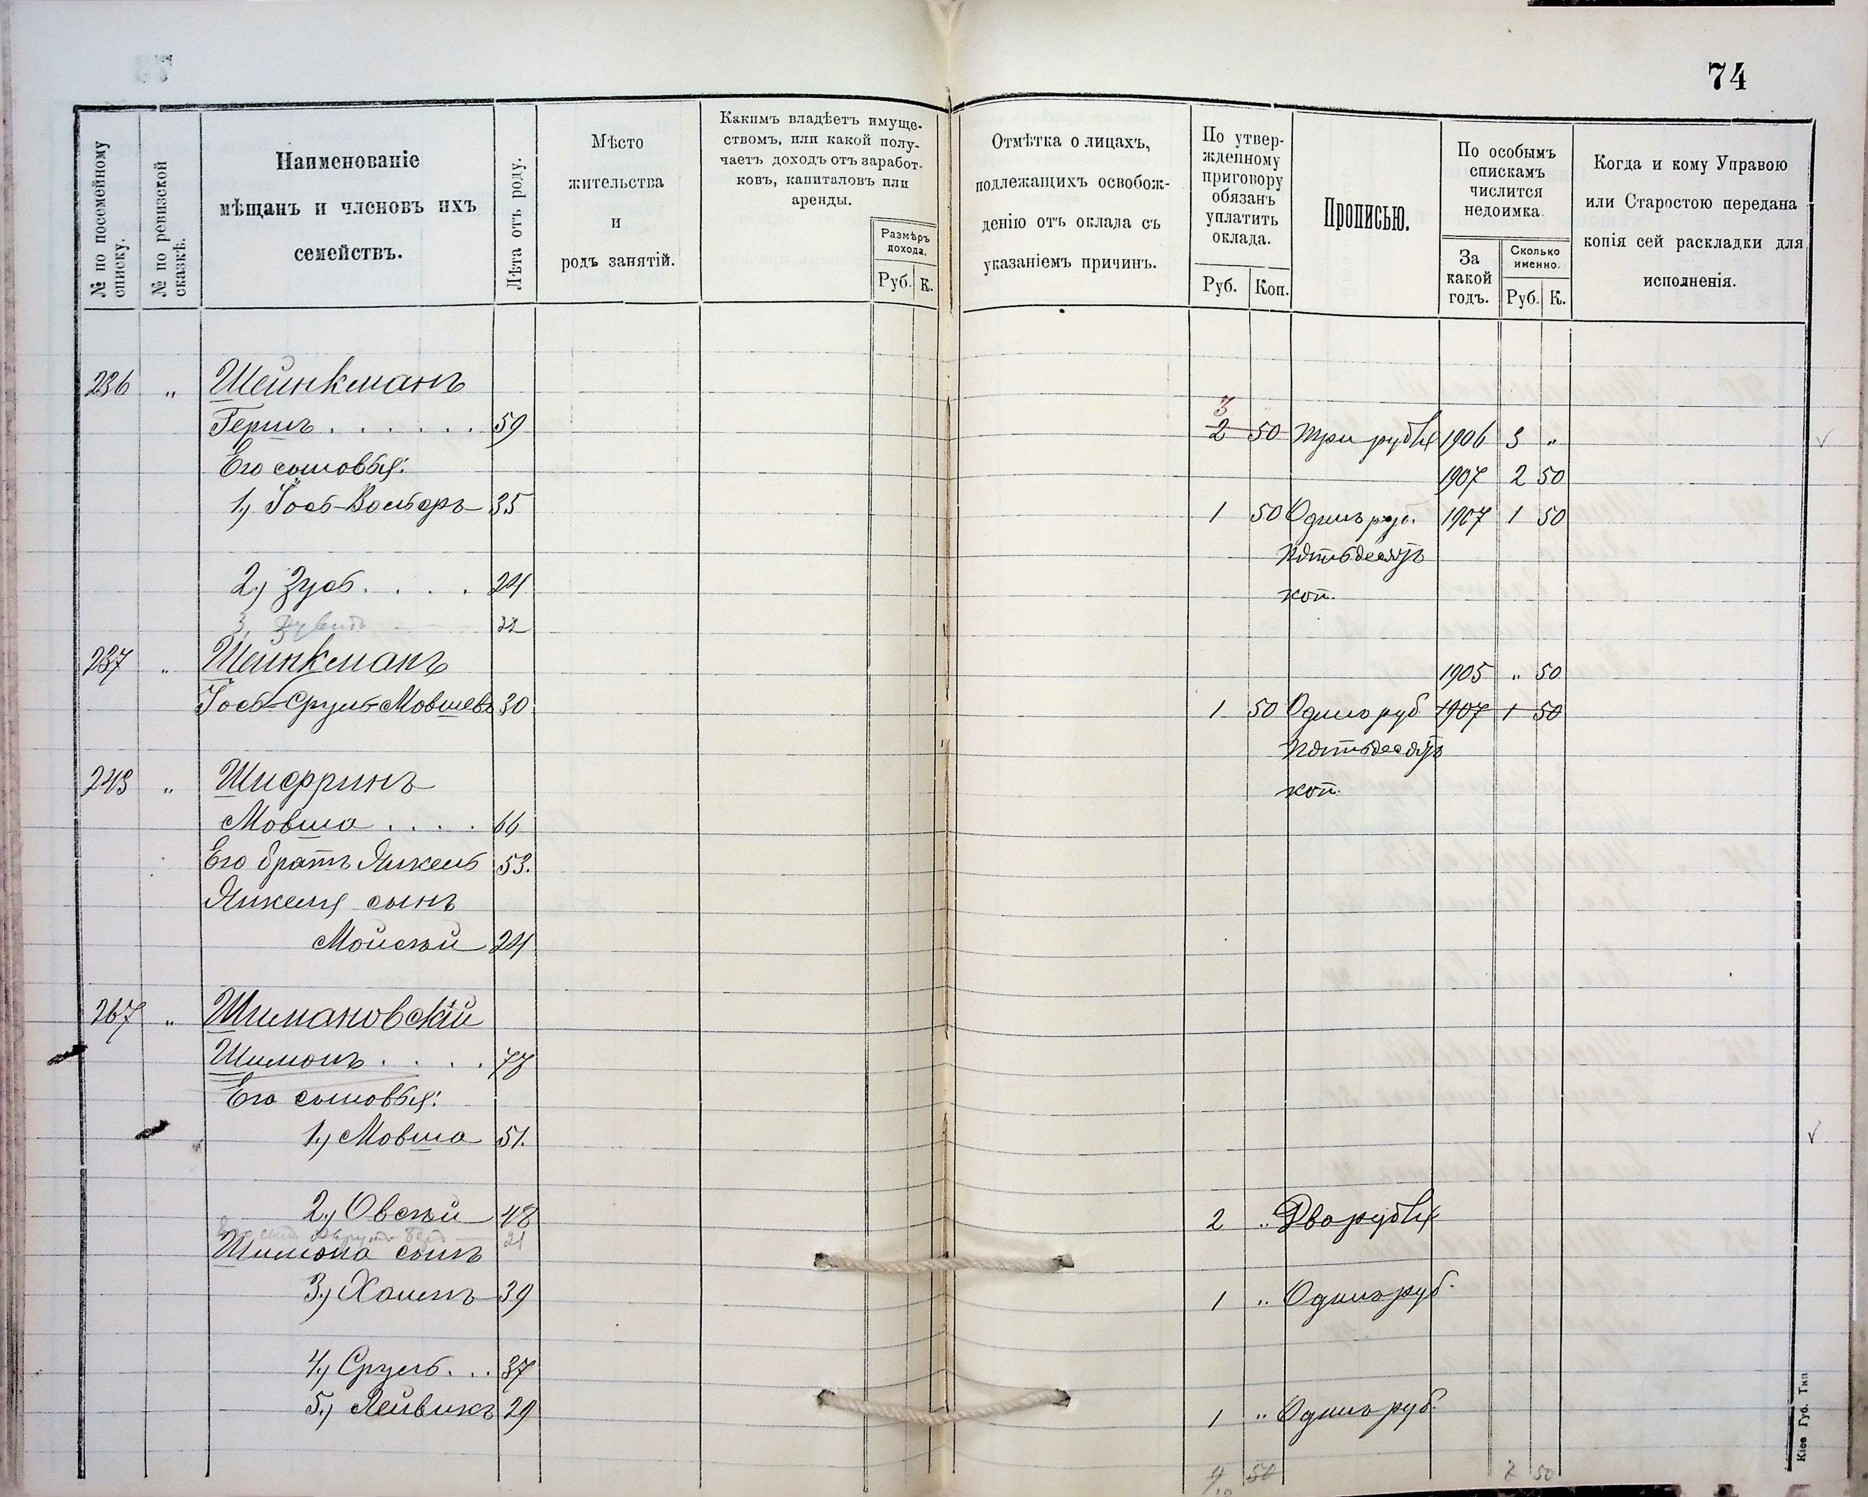 74
№ по посемейному списку.
№ по ревизской сказкѣ.
Наименованіе
мѣщанъ и членовъ ихъ
семействъ.
Лѣта отъ роду.
Мѣсто
жительства
и
родъ занятій.
Какимъ владѣетъ имуще-
ствомъ, или какой полу-
чаетъ доходъ отъ заработ-
ковъ, капиталовъ или
аренды.
Размѣръ
дохода.
Руб. К.
Отмѣтка о лицахъ,
подлежащихъ освобож-
денію отъ оклада съ
указаніемъ причинъ.
По утвер-
жденному
приговору
обязанъ
уплатить
оклада.
Руб. Коп.
Прописью.
По особымъ
спискамъ
числится
недоимка.
За
какой
годъ.
Сколько
именно.
Руб. К.
Когда и кому Управою
или Старостою передана
копія сей раскладки для
исполненія.
236 " Шейнкманъ
3
Гершъ . . . . . . 59 2 50 Три рубля 1906 3 "
Его сыновья: 1907 2 50
1, Іось-Вольфъ 35 1 50 Одинъ руб. 1907 1 50
пятьдесятъ
2, Зусь . . . . 24 коп.
3, 22
237 " Шейнкманъ 1905 " 50
Іось-Сруль Мовшевъ 30 1 50 Одинъ руб 1907 1 50
пятьдесятъ
243 " Шифринъ коп.
Мовша . . . . 66
Его братъ Янкель 53.
Янкеля сынъ
Мойсѣй 24
267 " Шимановскій
Шимонъ . . . . 77
Его сыновья:
1, Мовша 51.
2, Овсѣй 48 2 " Два рубля
21
Шимона сынъ
3, Хаимъ 39 1 " Одинъ руб.
4, Сруль . . . 37
5, Лейвикъ 29 1 " Одинъ руб.
50 7 50
Кіев Губ. Тип